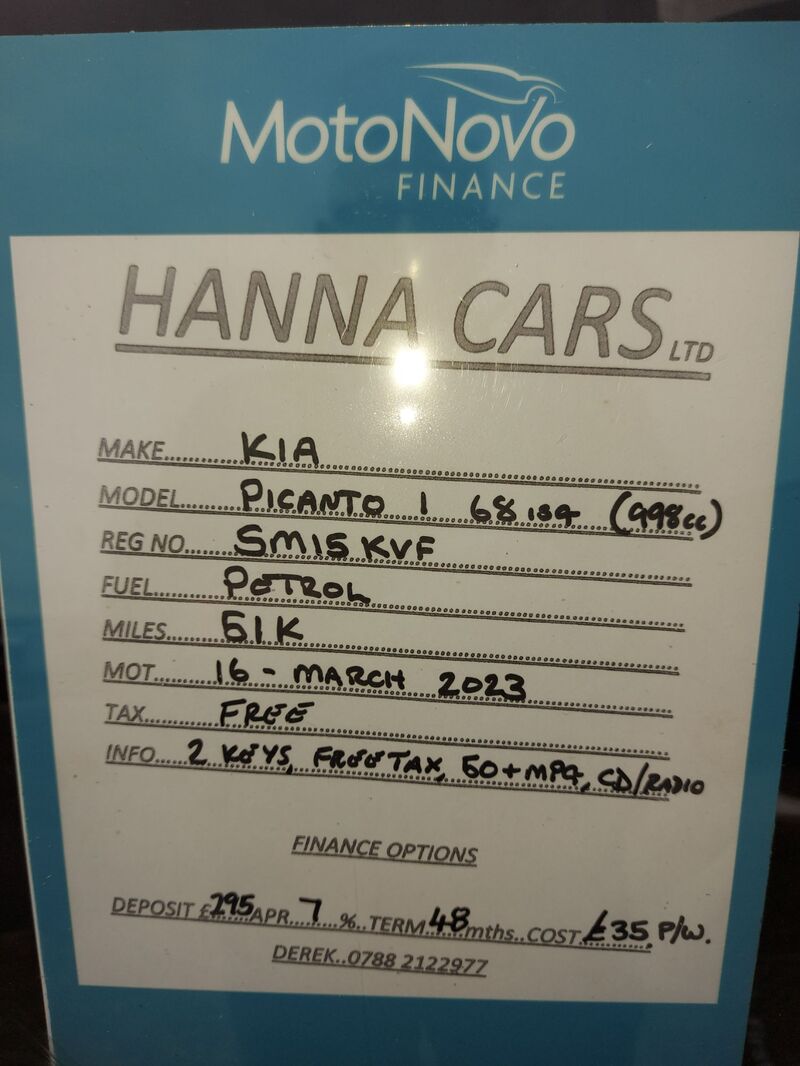 MotoNovo
FINANCE
HANNA CARS LTD
MAKE...... KIA
MODEL...... PICANTO 1 68 ISG (998cc)
REG NO...... SM15 KVF
FUEL...... PETROL
MILES...... 61K
MOT...... 16 - MARCH 2023
TAX...... FREE
INFO.... 2 KEYS, FREE TAX, 60+MPG, CD/RADIO
FINANCE OPTIONS
DEPOSIT £295 APR 7 %..TERM 48 mths..COST £35 P/W.
DEREK..0788 2122977